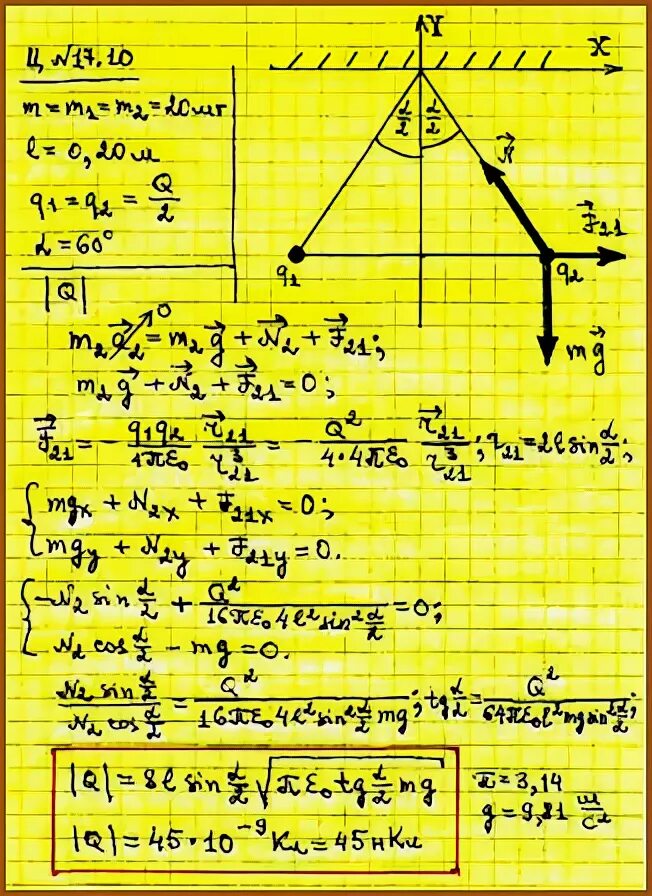 Ц №17.10
m = m₁ = m₂ = 20 мг
l = 0,20 м
q₁ = q₂ = Q/2
α = 60°
|Q|
Y
X
α/2 α/2
N⃗
F⃗₂₁
q₁
q₂
mg⃗
0
m₂a⃗₂ = m₂g⃗ + N⃗₂ + F⃗₂₁;
m₂g⃗ + N⃗₂ + F⃗₂₁ = 0;
F⃗₂₁ = - q₁q₂/4πε₀ r⃗₂₁/r³₂₁ = - Q²/4·4πε₀ r⃗₂₁/r³₂₁; r₂₁ = 2l sin α/2;
mgx + N₂x + F₂₁x = 0;
mgy + N₂y + F₂₁y = 0.
-N₂ sin α/2 + Q²/16πε₀4l² sin² α/2 = 0;
N₂ cos α/2 - mg = 0.
N₂ sin α/2 / N₂ cos α/2 = Q²/16πε₀4l² sin² α/2 mg; tg α/2 = Q²/64πε₀l² mg sin² α/2;
|Q| = 8l sin α/2 √πε₀ tg α/2 mg
π = 3,14
g = 9,81 м/с²
|Q| = 45·10⁻⁹ Кл = 45 нКл